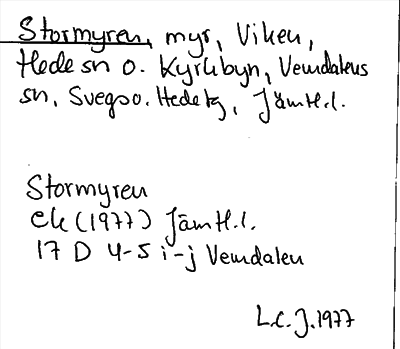 Stormyren, myr, Viken,
Hede sn o. Kyrkbyn, Vemdalens
sn, Svegs o. Hede tg, Jämtl. l.
Stormyren
ek (1977) Jämtl. l.
17 D 4-5 i-j Vemdalen
L.C.J. 1977